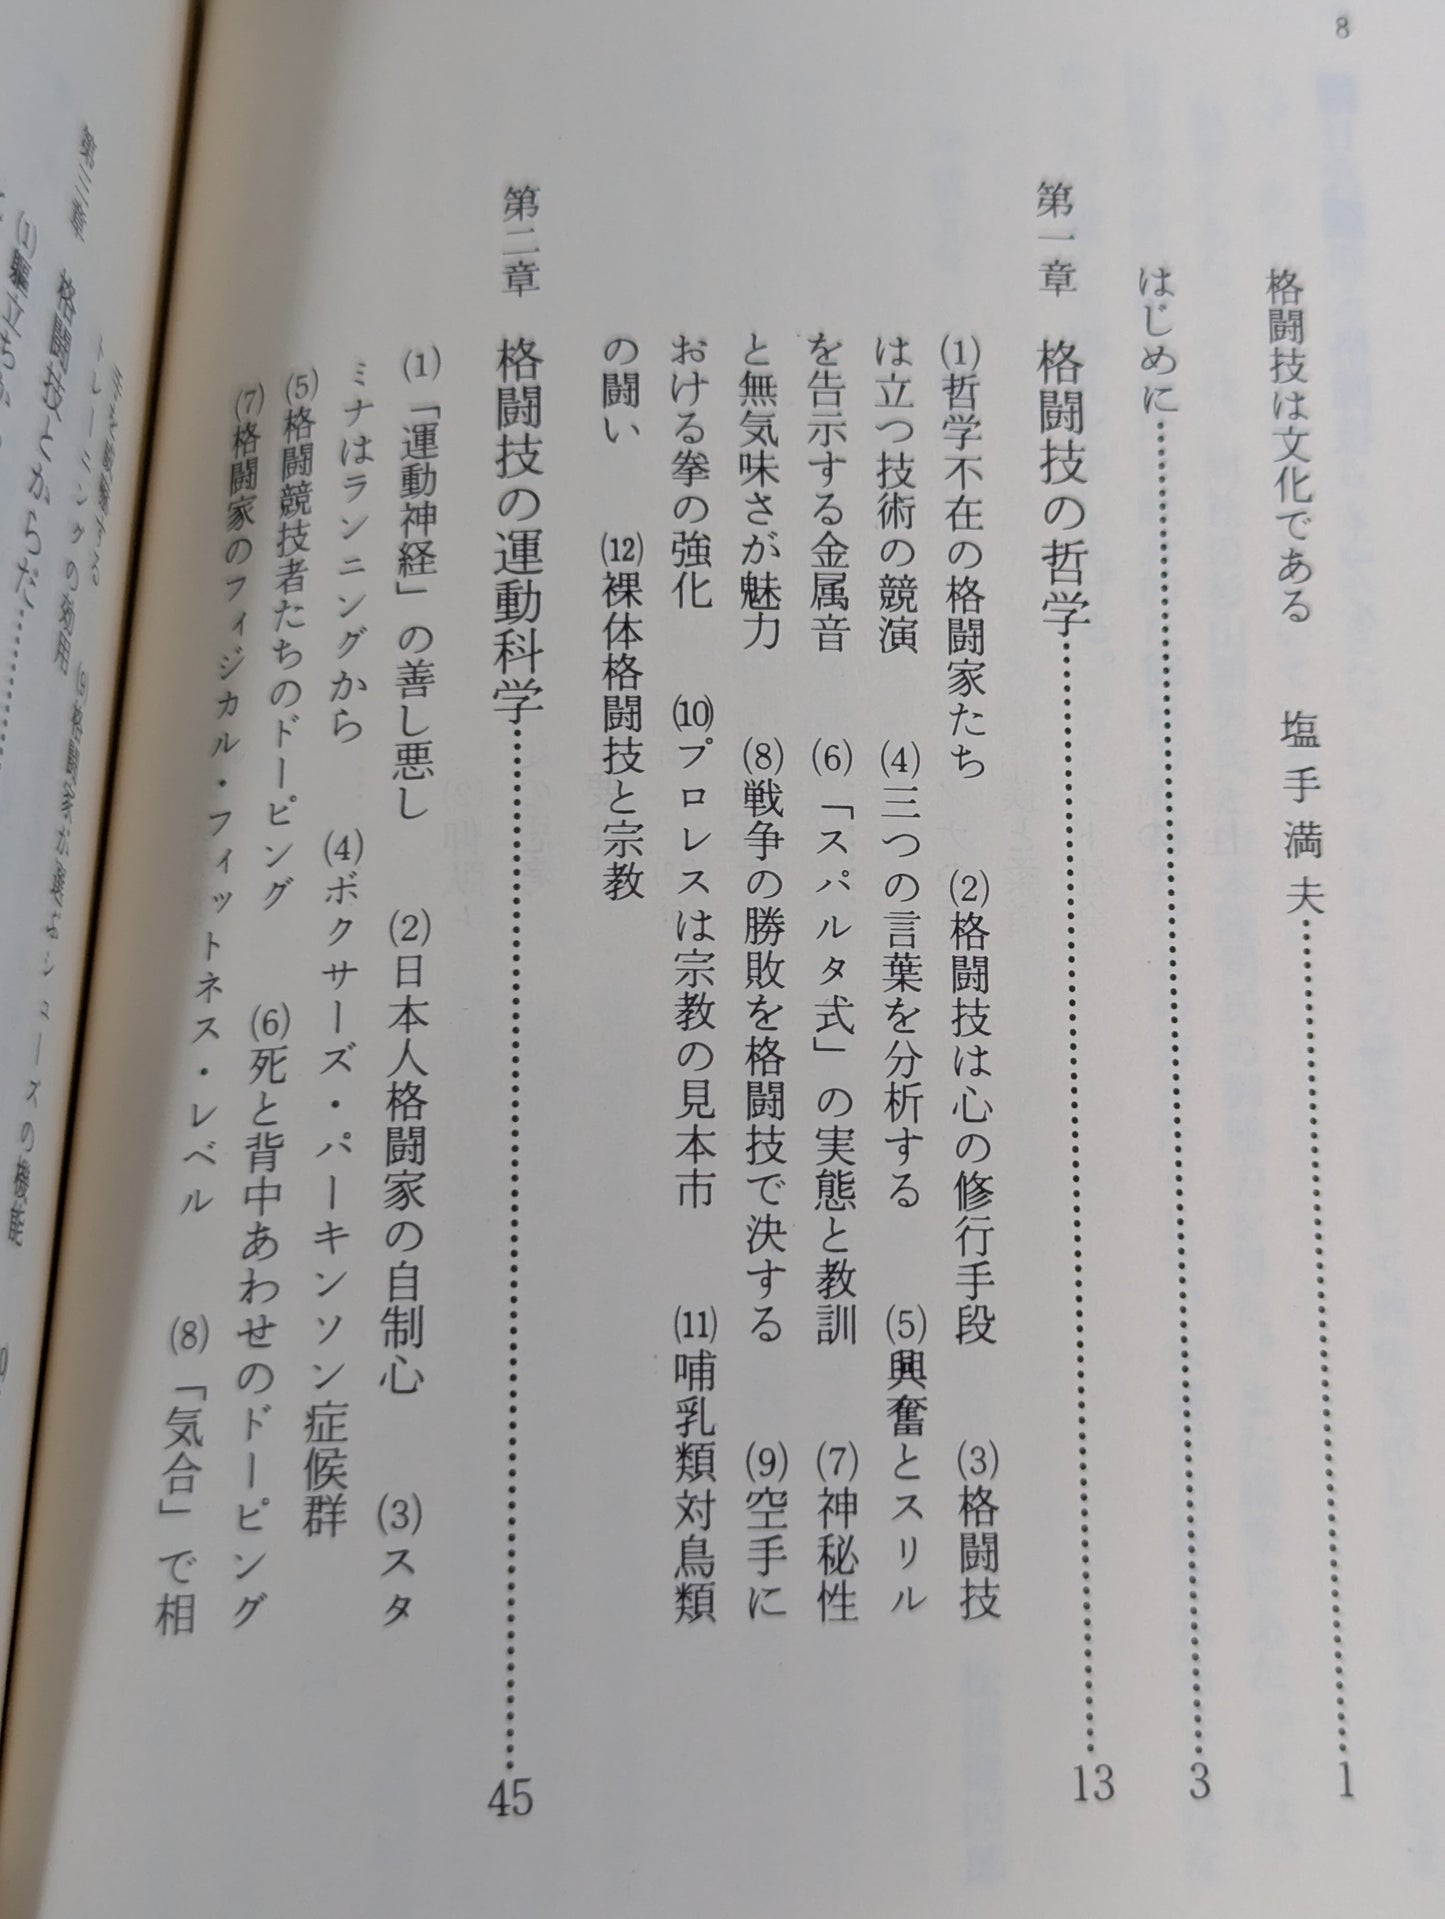 8
格闘技は文化である　塩手満夫……1
はじめに……3
第一章　格闘技の哲学……13
(1)哲学不在の格闘家たち　(2)格闘技は心の修行手段　(3)格闘技
は立つ技術の競演　(4)三つの言葉を分析する　(5)興奮とスリル
を告示する金属音　(6)「スパルタ式」の実態と教訓　(7)神秘性
と無気味さが魅力　(8)戦争の勝敗を格闘技で決する　(9)空手に
おける拳の強化　(10)プロレスは宗教の見本市　(11)哺乳類対鳥類
の闘い　(12)裸体格闘技と宗教
第二章　格闘技の運動科学……45
(1)「運動神経」の善し悪し　(2)日本人格闘家の自制心　(3)スタ
ミナはランニングから　(4)ボクサーズ・パーキンソン症候群
(5)格闘競技者たちのドーピング　(6)死と背中あわせのドーピング
(7)格闘家のフィジカル・フィットネス・レベル　(8)「気合」で相
手を威嚇する　(9)格闘家が選ぶシューズの機能
トレーニングの効用
第三章　格闘技とからだ……
(1)軀立ち